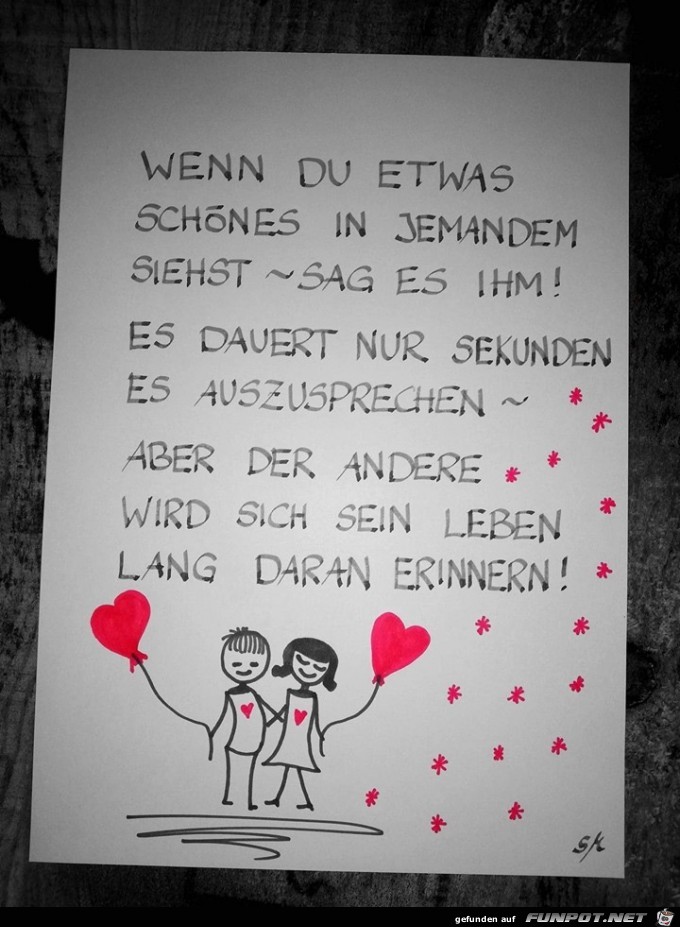 WENN DU ETWAS
SCHÖNES IN JEMANDEM
SIEHST ~ SAG ES IHM!
ES DAUERT NUR SEKUNDEN
ES AUSZUSPRECHEN ~
ABER DER ANDERE
WIRD SICH SEIN LEBEN
LANG DARAN ERINNERN!
SK
gefunden auf FUNPOT.NET